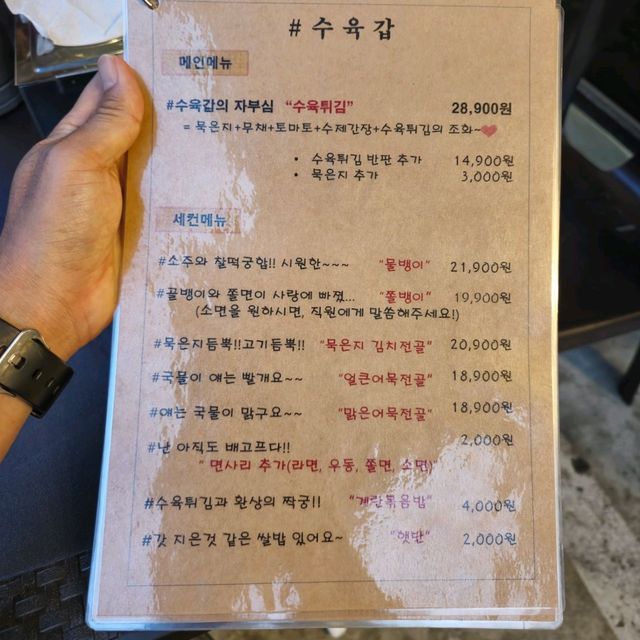 #수육갑
메인메뉴
#수육갑의 자부심 "수육튀김" 28,900원
= 묵은지+무채+토마토+수제간장+수육튀김의 조화~
• 수육튀김 반판 추가 14,900원
• 묵은지 추가 3,000원
세컨메뉴
#소주와 찰떡궁합!! 시원한~~~ "물뱅이" 21,900원
#골뱅이와 쫄면이 사랑에 빠졌... "쫄뱅이" 19,900원
(소면을 원하시면, 직원에게 말씀해주세요!)
#묵은지듬뿍!!고기듬뿍!! "묵은지 김치전골" 20,900원
#국물이 얘는 빨개요~~ "얼큰어묵전골" 18,900원
#얘는 국물이 맑구요~~ "맑은어묵전골" 18,900원
#난 아직도 배고프다!! 2,000원
" 면사리 추가(라면, 우동, 쫄면, 소면)"
#수육튀김과 환상의 짝궁!! "계란볶음밥" 4,000원
#갓 지은것 같은 쌀밥 있어요~ "햇반" 2,000원